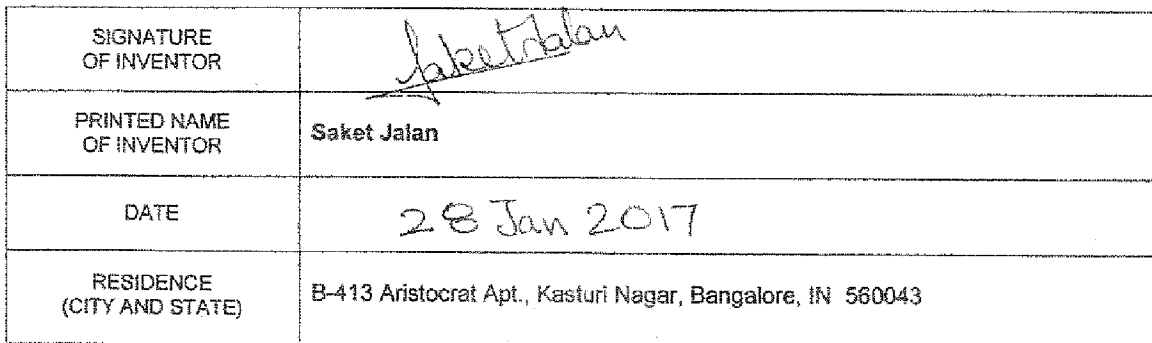 SIGNATURE
OF INVENTOR
Saket Jalan
PRINTED NAME
OF INVENTOR
Saket Jalan
DATE
28 Jan 2017
RESIDENCE
(CITY AND STATE)
B-413 Aristocrat Apt., Kasturi Nagar, Bangalore, IN 560043